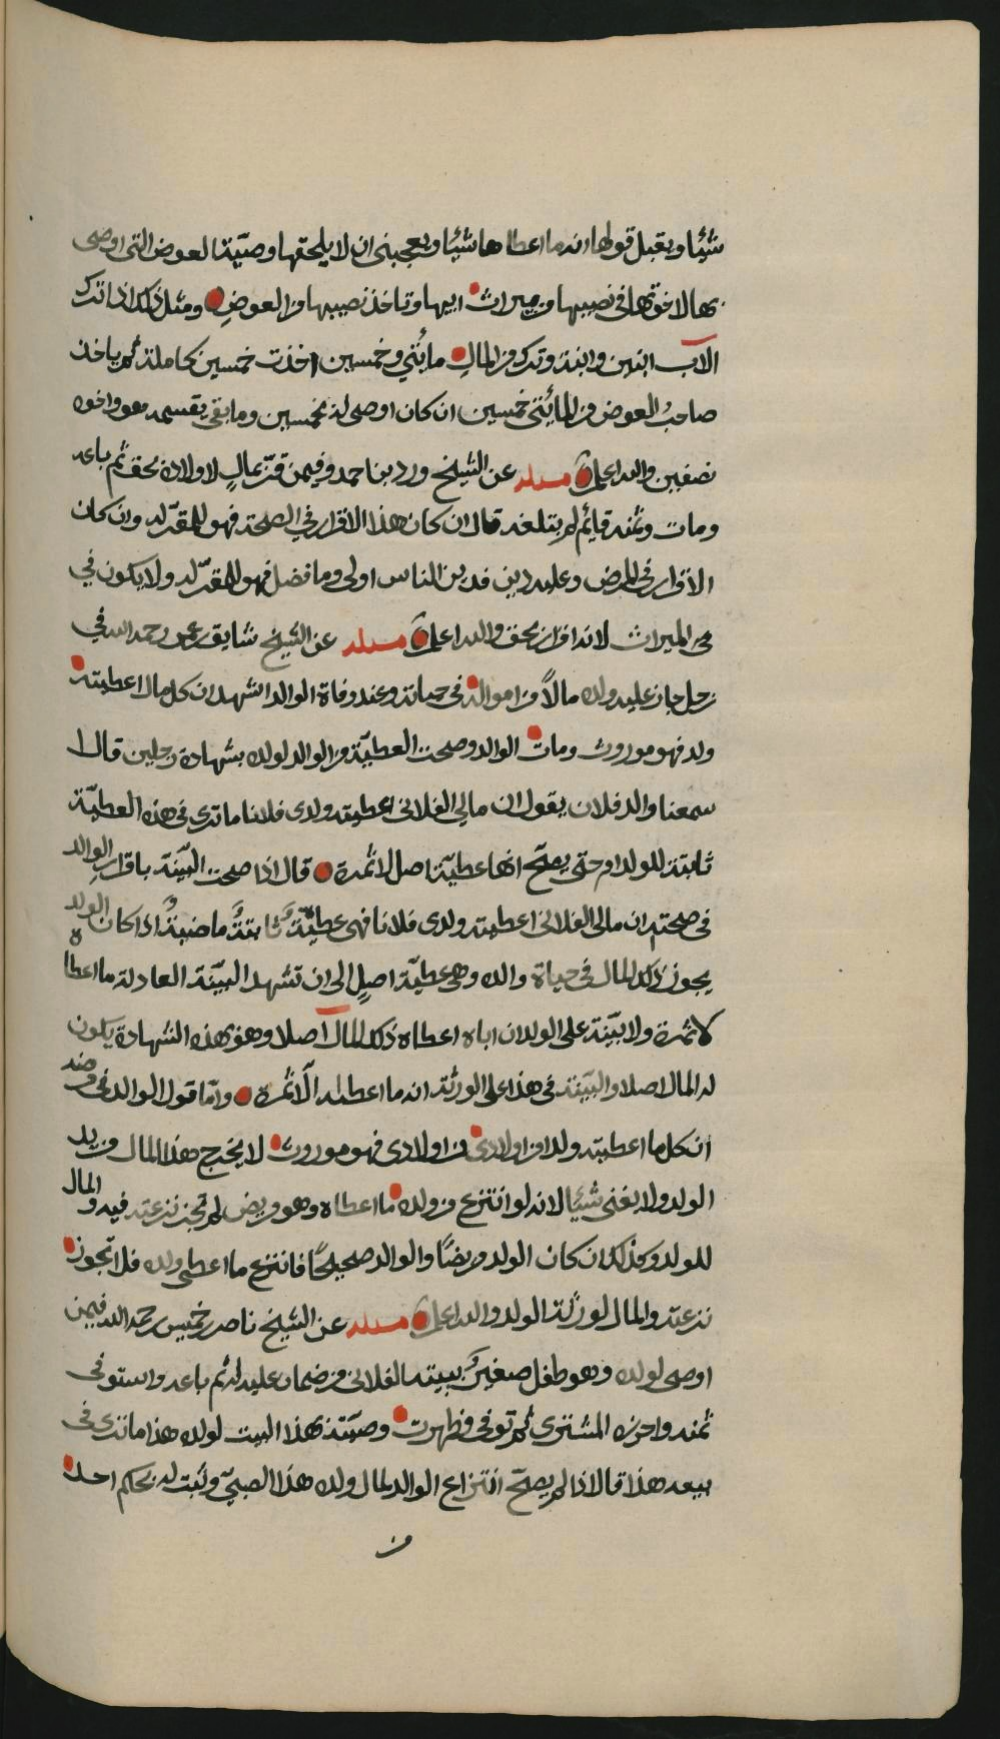 شيئا ويقبل قولها انه ما اعطاها شيئا ويعجبني ان لا يلحقها وصيّة العوض التي اوصى
بها لاخوتها في نصيبها من ميراث ابيها وتاخذ نصيبها من العوضِ ومثل ذلك اذا ترك
الاب ابنين وابنة وترك من المالِ مائتي وخمسين اخذت خمسين كاملة ثم ياخذ
صاحبُ العوض من المائتي خمسين ان كان اوصى له بخمسين وما بقي يقسمه هو واخوه
نصفين والله اعلم مسئلة عن الشيخ ورد بن احمد وفيمن قرّ بمالٍ لاولاده بحق ثم باعه
ومات وثمنه قايم لم يتلفه قال ان كان هذا الاقرار في الصحة فهو للمقرّ له وان كان
الاقرار في المرض وعليه دين فدين الناس اولى وما فضل فهو للمقرّ له ولا يكون في
في الميراث لانه اقرار بحق والله اعلم مسئلة عن الشيخ شايق بن عمر رحمه الله في
رجل حاز عليه ولده مالاً من امواله في حياته وعند وفاة الوالد اشهد ان كل مال اعطيته
ولد فهو موروث ومات الوالد وصحت العطيّة من الوالد لولده بشهادة رجلين قالا
سمعنا والد فلان يقول ان مالي الفلاني اعطيته ولدي فلانا ما ترى في هذه العطيّة
ثابتة للولد ام حتى يصحّ انها عطيّة اصل لا ثمرة قال اذا صحت البيّنة باقرارِ الوالد
في صحته ان مالي الفلاني اعطيته ولدي فلانا فهي عطيّةٌ ثابتةٌ ماضيةٌ اذا كان الولد
يحوز ذلك المال في حياة والده وهي عطيّة اصلٍ الى ان تشهد البيّنة العادلة ما اعطاه
الا ثمرة ولا بيّنة على الولد ان اباه اعطاه ذلك المال اصلا وهو بهذه الشهادة يكون
له المال اصلا والبينة في هذا على الورثة انه ما اعطاه الّا ثمرة وامّا قول الوالد في مرضه
ان كل ما اعطيته ولدا من اولادي من اولادي فهو موروث لا يخرج هذا المال من يد
الولد ولا يغني شيئا لانه لو انتزع من ولده ما اعطاه وهو مريض لم تجز نزعته فيه والمال
للولد وكذلك ان كان الولد مريضًا والوالد صحيحًا فانتزع ما اعطى ولده فلا تجوز
نزعته والمال لورثة الولد والله اعلم مسئلة عن الشيخ ناصر بن خميس رحمه الله فيمن
اوصى لولده وهو طفل صغير ببيته الفلاني من ضمان عليه له ثم باعه واستوفى
ثمنه واحرزه المشتري ثم توفى فظهرت وصيّته بهذا البيت لولده هذا ما ترى في
بيعه هذا قال اذا لم يصحّ انتزاع الوالد لمال ولده هذا الصبيّ وثبت له بحكم احد
من